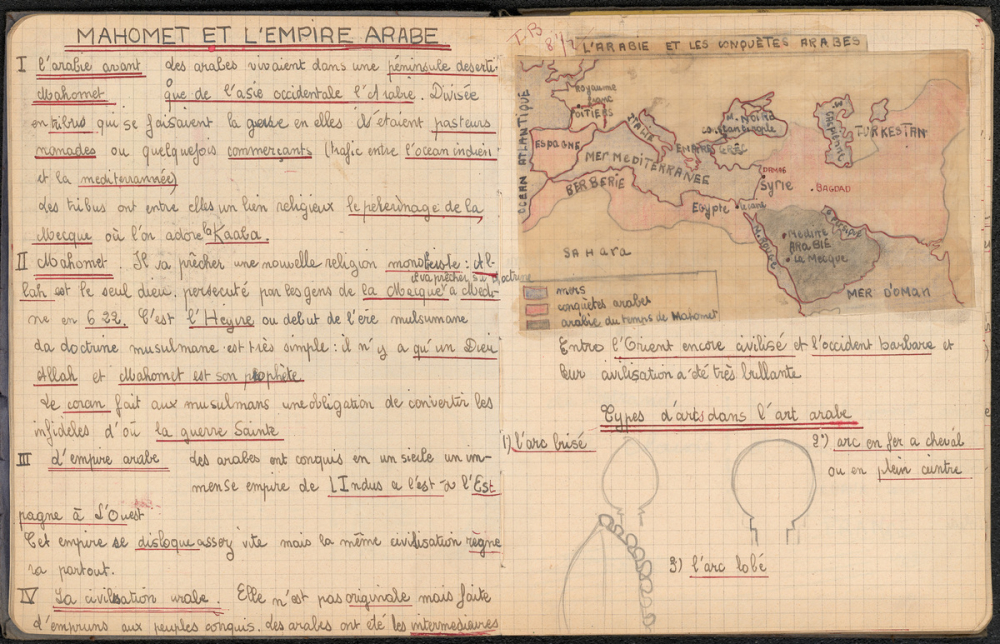 MAHOMET ET L'EMPIRE ARABE
I l'arabie avant des arabes vivaient dans une péninsule deserti
Mahomet que de l'asie occidentale l'Arabie. Divisée
en tribus qui se faisaient la guerre en elles ils étaient pasteurs
nomades ou quelquefois commerçants (trafic entre l'ocean indien
et la mediterrannée)
Les tribus ont entre elles un lien religieux le pelerinage de la
Mecque où l'on adore la Kaaba.
II Mahomet. Il va prêcher une nouvelle religion monotheiste : Al-
lah est le seul dieu. persecuté par les gens de la Mecque il va prêcher sa doctrine a Medi-
ne en 622. C'est l'Hegyre ou debut de l'ére mulsumane
La doctrine musulmane est très simple : il n'y a qu'un Dieu
Allah et Mahomet est son prophète.
Le coran fait aux musulmans une obligation de convertir les
infidèles d'où la guerre Sainte
III d'empire arabe des arabes ont conquis en un siecle un im-
mense empire de L'Indus a l'est à l'Es
pagne à L'Ouest
Cet empire se disloque assez vite mais la même civilisation règne
ra partout.
IV La civilisation arabe. Elle n'est pas originale mais faite
d'empruns aux peuples conquis. des arabes ont été les intermediaires
T.B
8 1/2
L'ARABIE ET LES CONQUÊTES ARABES
OCEAN ATLANTIQUE
Royaume
Franc
POITIERS
ESPAGNE
ITALIE
MER MEDITERRANEE
BERBERIE
M. NOIRE
constantinople
EMPIRE
M. Caspienne
TURKESTAN
DAMAS
Syrie
BAGDAD
Egypte
le caire
M. ROUGE
Medine
ARABIE
la Mecque
SAHara
MER D'OMAN
mers
conquêtes arabes
arabie du temps de Mahomet
Entre l'Orient encore civilisé et l'occident barbare et
leur civilisation a été très brillante
Types d'arts dans l'art arabe
1) l'arc brisé
2°) arc en fer a cheval
ou en plein cintre
3) l'arc lobé